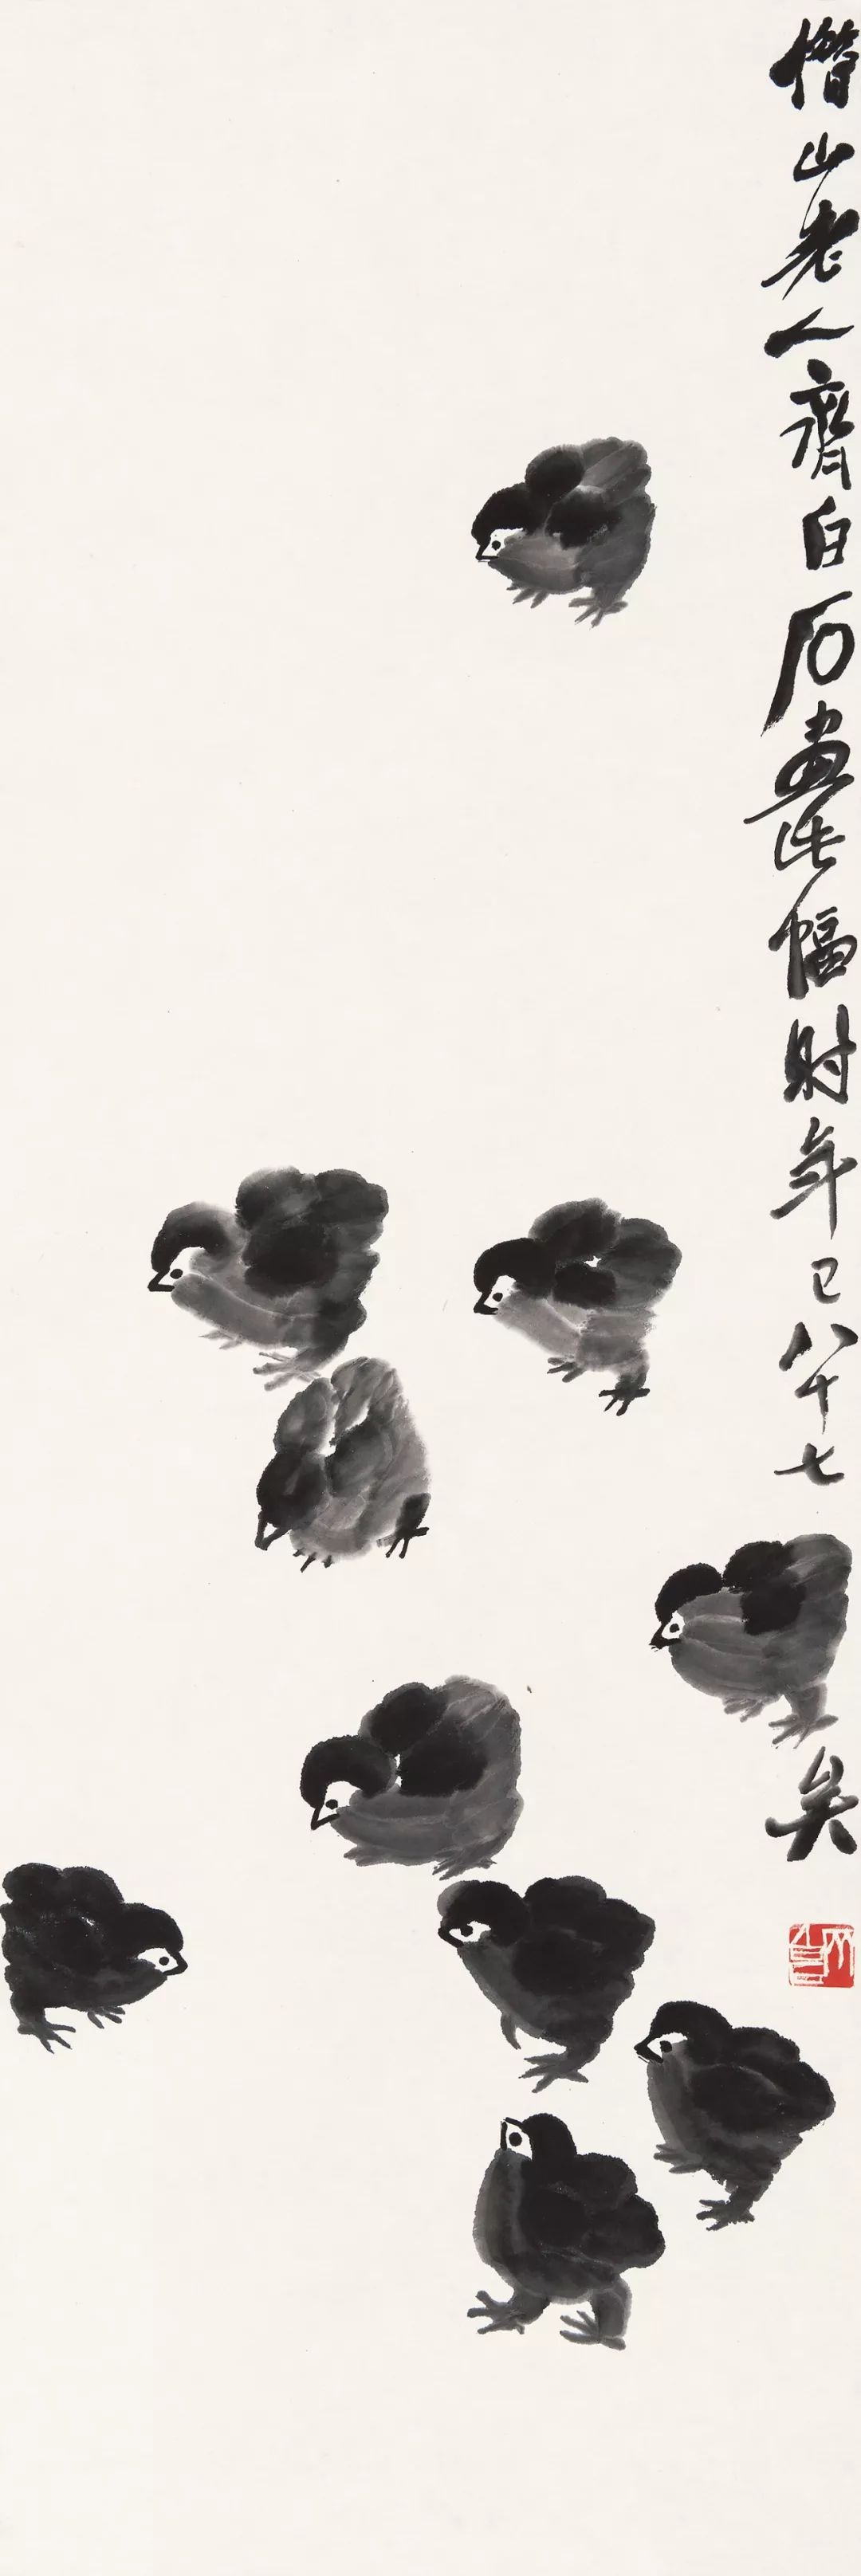 借山老人齊白石畫此幅時年已八十七矣